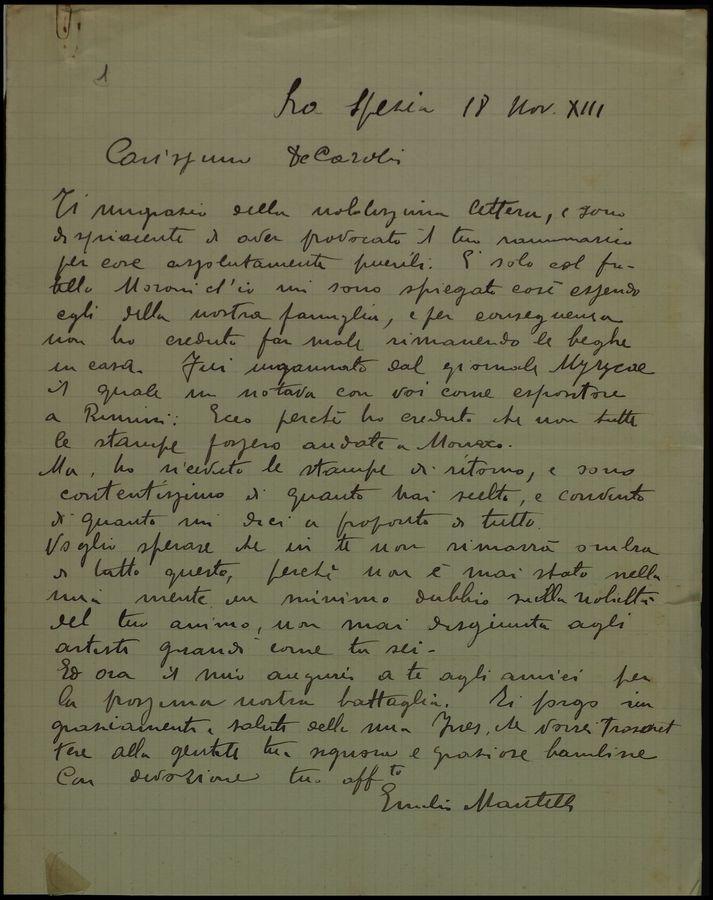 1
La Spezia 18 Nov. XIII
Carissimo De Carolis
Ti ringrazio della nobilissima lettera, e sono
dispiacente di aver provocato il tuo rammarico
per cose assolutamente puerili. E solo col fra-
tello Moroni ch'io mi sono spiegato così essendo
egli della nostra famiglia, e per conseguenza
non ho creduto far male rimanendo le beghe
in casa. Fui ingannato dal giornale Myrycae
il quale mi notava con voi come espositore
a Rimini: Ecco perchè ho creduto che non tutte
le stampe fossero andate a Monaco.
Ma, ho ricevuto le stampe di ritorno, e sono
contentissimo di quanto hai scelto, e convinto
di quanto mi dici a proposito di tutto.
Voglio sperare che in te non rimarrà ombra
di tutto questo, perchè non è mai stato nella
mia mente un minimo dubbio sulla nobiltà
del tuo animo, non mai disgiunta agli
artisti grandi come tu sei -
Ed ora il mio augurio a te agli amici per
la prossima nostra battaglia. Ti porgo i
ringraziamenti e saluti della mia Ines, che vorrei trasmet
tere alla gentile tua signora e graziose bambine
Con devozione tuo aff.to
Emilio Mantelli